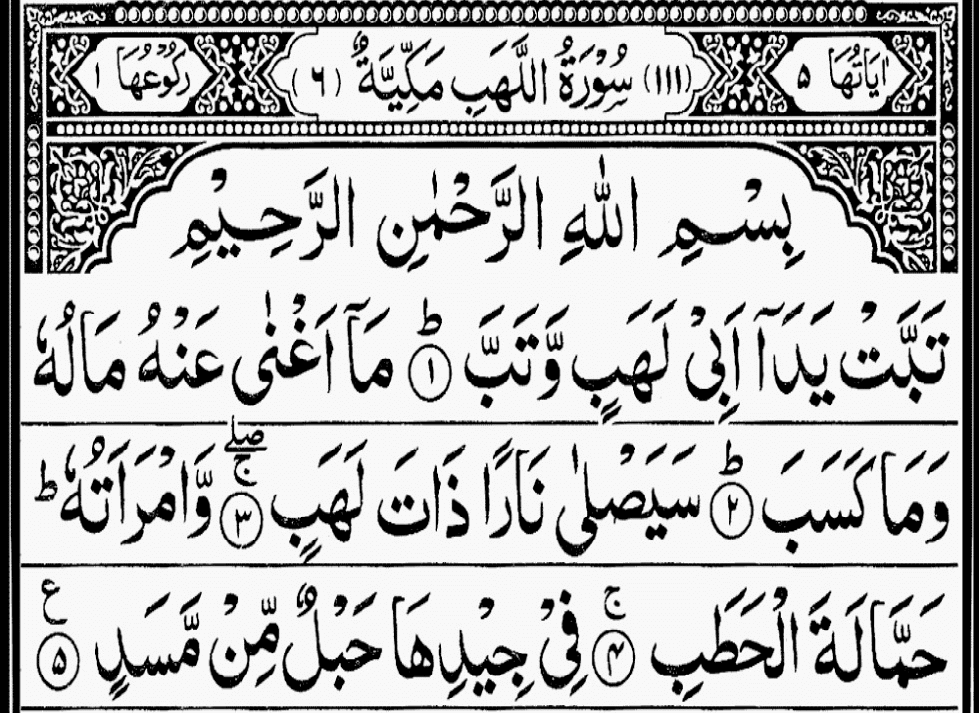 اٰيَاتُهَا ٥ (١١١) سُوْرَةُ اللَّهَبِ مَكِّيَّةٌ (٦) رُكُوْعُهَا ١
بِسْمِ اللهِ الرَّحْمٰنِ الرَّحِيْمِ
تَبَّتْ يَدَآ اَبِيْ لَهَبٍ وَّتَبَّ ؕ ١ مَآ اَغْنٰى عَنْهُ مَالُهٗ
وَمَا كَسَبَ ؕ ٢ سَيَصْلٰى نَارًا ذَاتَ لَهَبٍ ۖۚ ٣ وَّامْرَاَتُهٗ ؕ
حَمَّالَةَ الْحَطَبِ ۚ ۴ فِيْ جِيْدِهَا حَبْلٌ مِّنْ مَّسَدٍ ع ۵